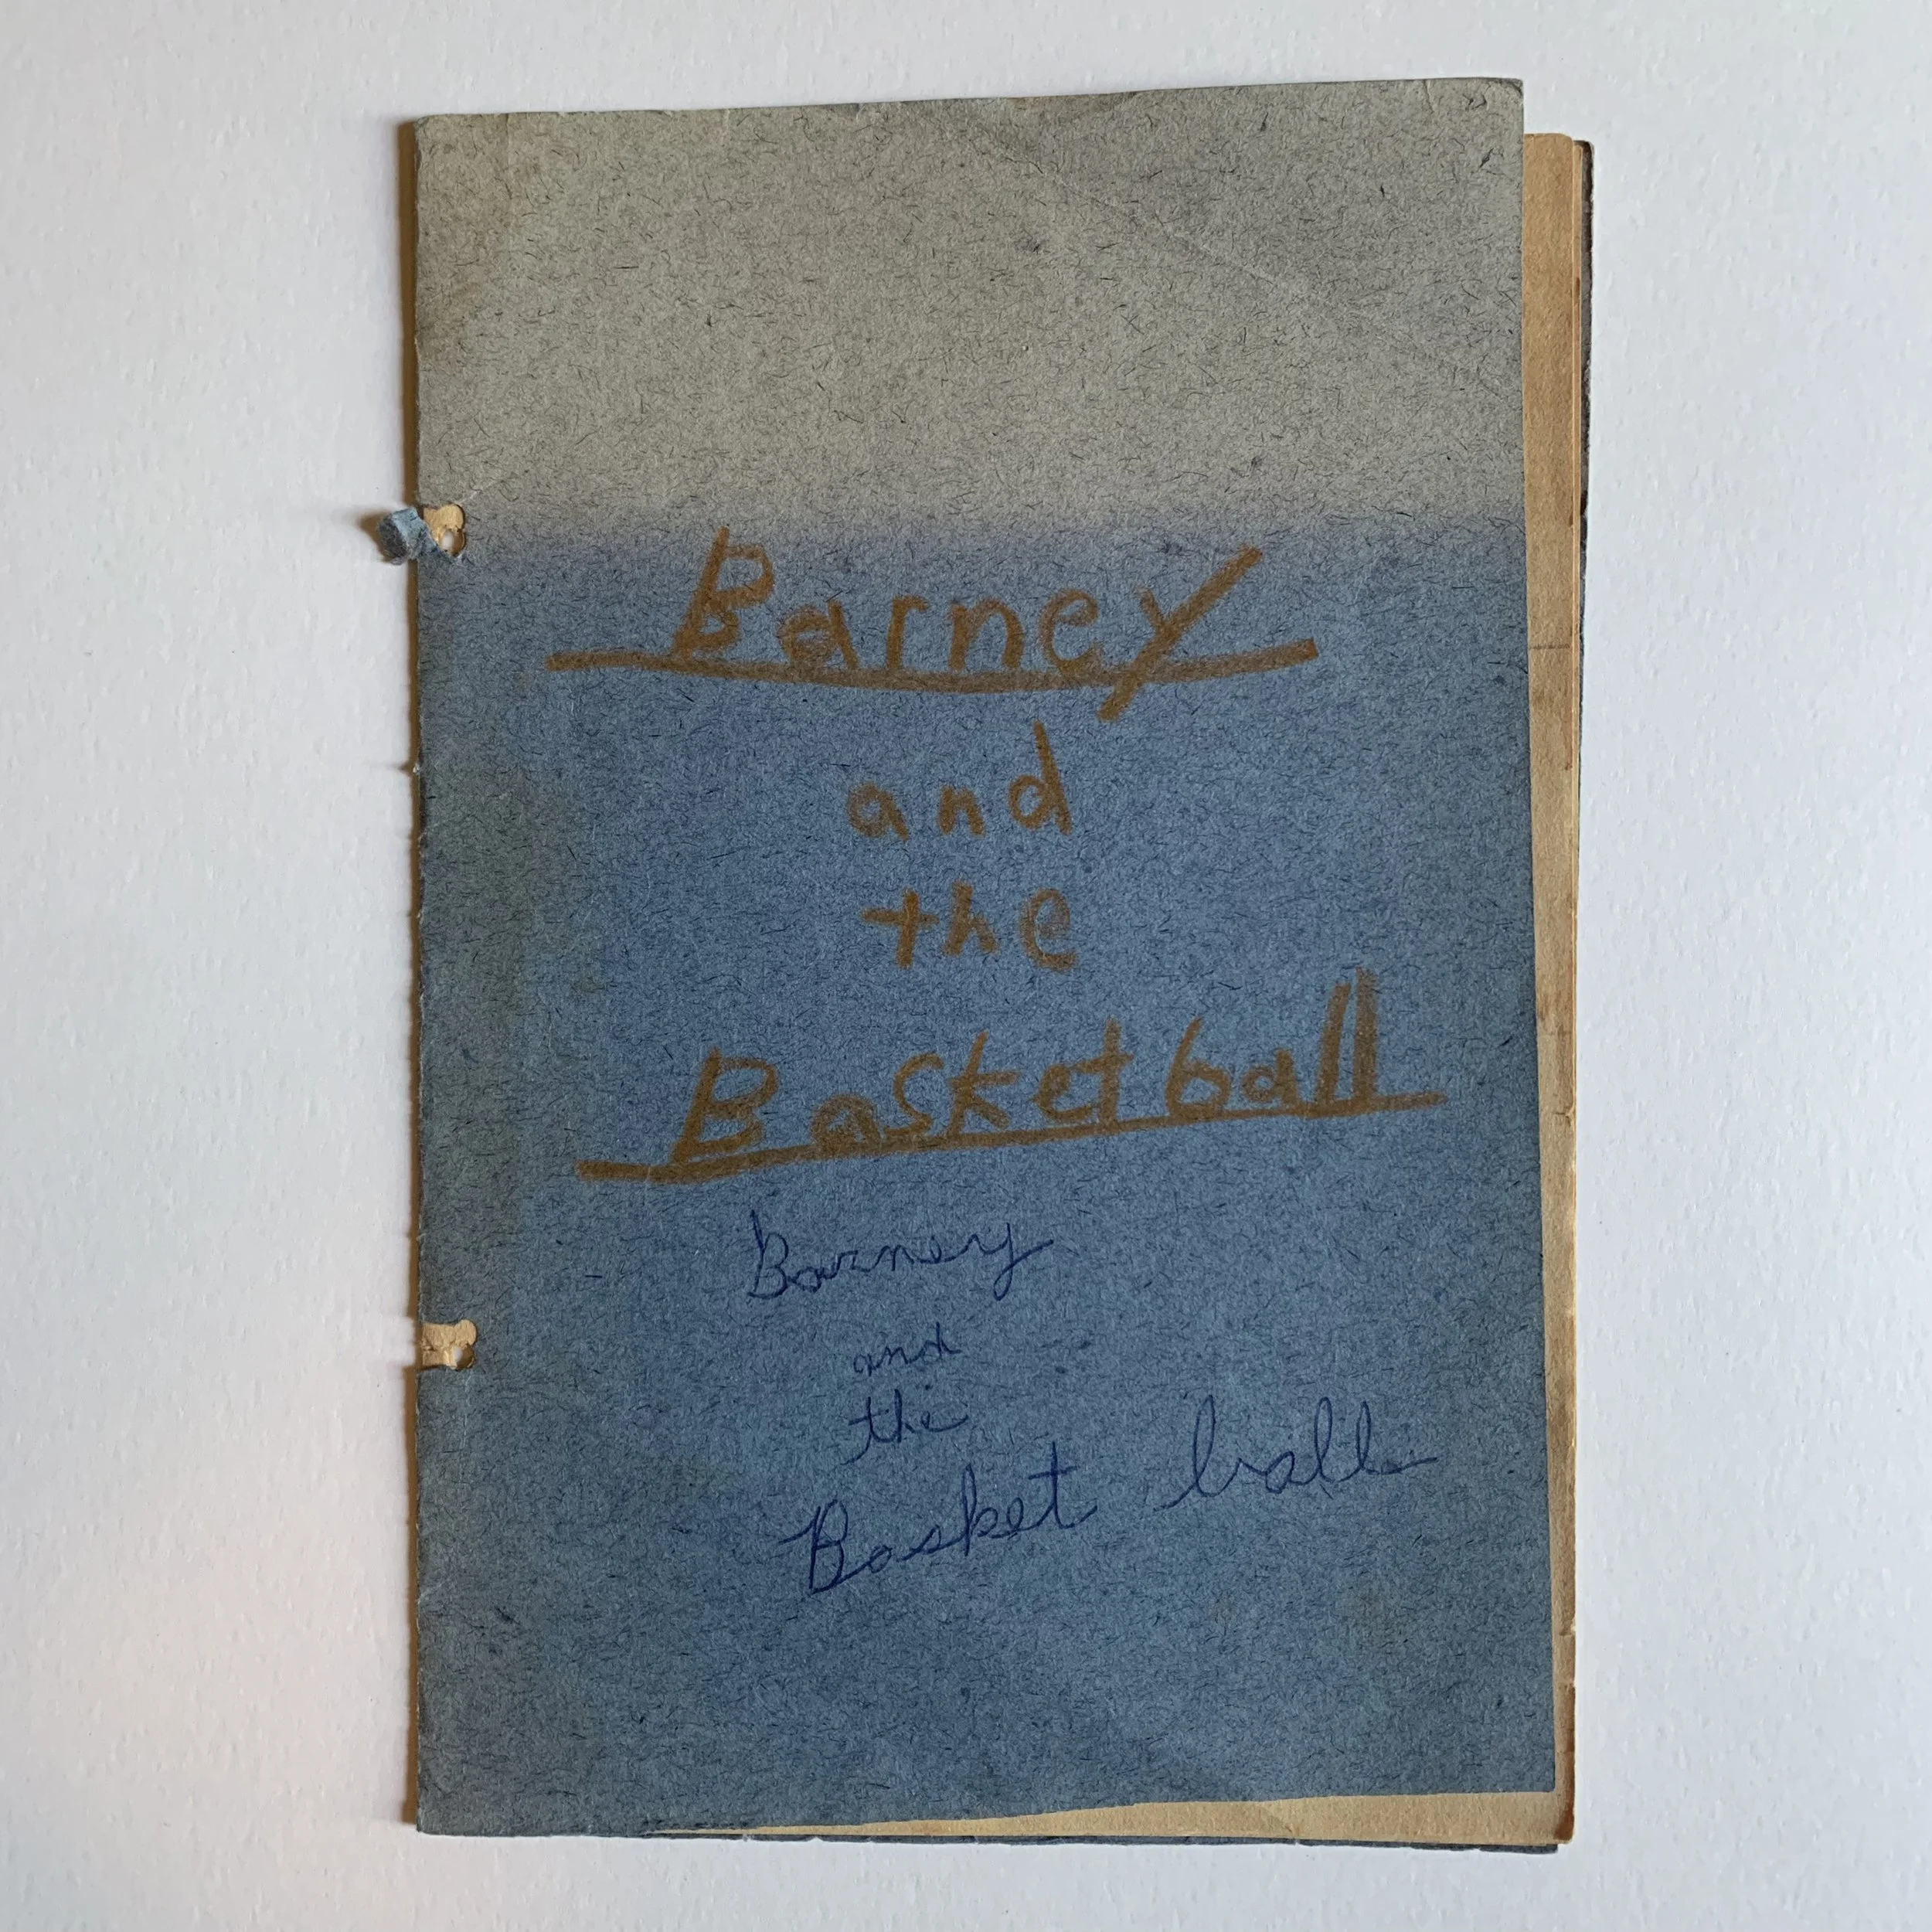 Barney
and
the
Basketball
Barney
and
the
Basket ball